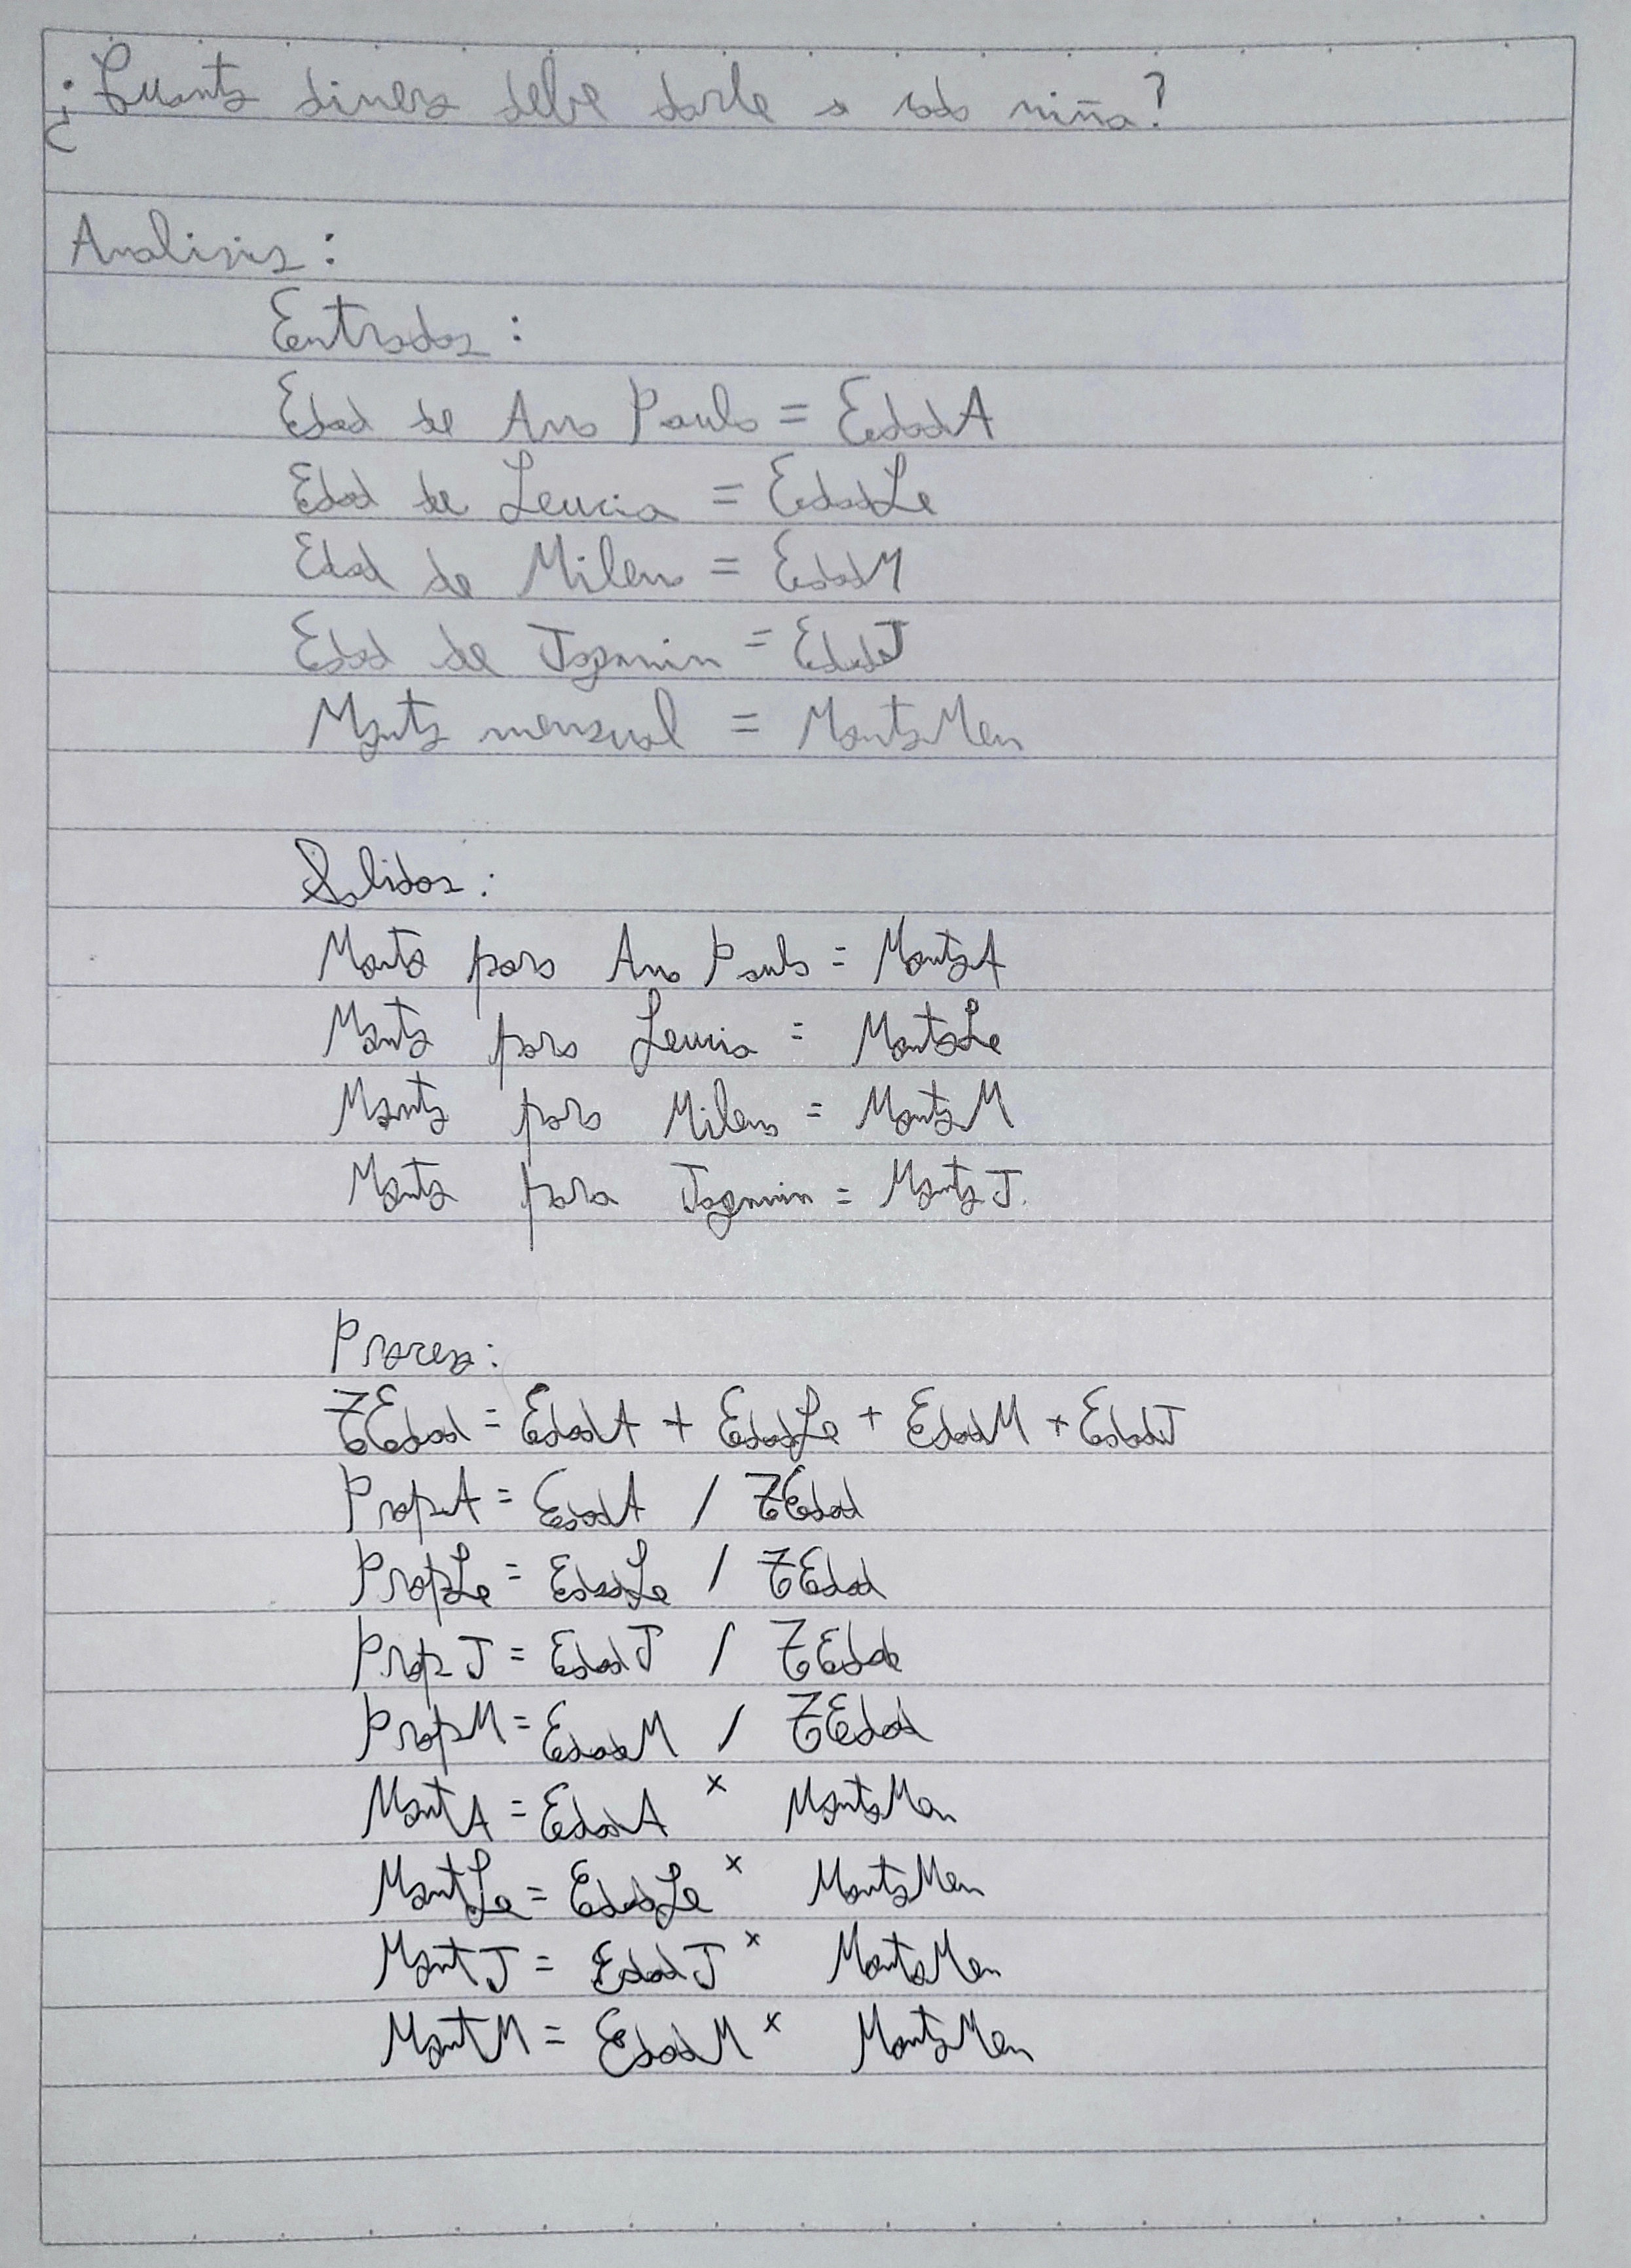 ¿Cuanto dinero debe darle a cada niña?
Analisis:
Entradas:
Edad de Ana Paula = EdadA
Edad de Leucia = EdadLe
Edad de Milena = EdadM
Edad de Jazmin = EdadJ
Monto mensual = MontoMen
Salidas:
Monto para Ana Paula = MontoA
Monto para Leucia = MontoLe
Monto para Milena = MontoM
Monto para Jazmin = MontoJ.
Proceso:
ZEdad = EdadA + EdadLe + EdadM + EdadJ
PropA = EdadA / ZEdad
PropLe = EdadLe / ZEdad
PropJ = EdadJ / ZEdad
PropM = EdadM / ZEdad
MontA = EdadA x MontoMen
MontLe = EdadLe x MontoMen
MontJ = EdadJ x MontoMen
MontM = EdadM x MontoMen